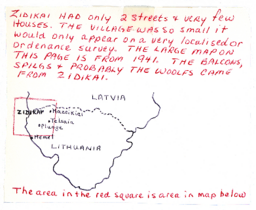 ZIDIKAI HAD only 2 Streets & very few
HOUSES. THE VILLAGE WAS SO small it
would only appear on a very localised or
ordenance survey. THE LARGE MAP ON
THIS PAGE IS FROM 1941. THE BALCONS,
SPILGS & PROBABLY THE WOOLFS CAME
FROM ZIDIKAI.
LATVIA
ZIDIKAI
Mazeikiai
Telsiai
Plunge
Memel
LITHUANIA
The area in the red square is area in map below